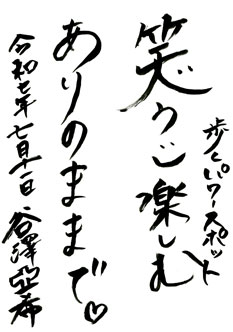 歩くパワースポット
笑って楽しむ
ありのままで♡
令和七年七月十一日 谷澤亞希